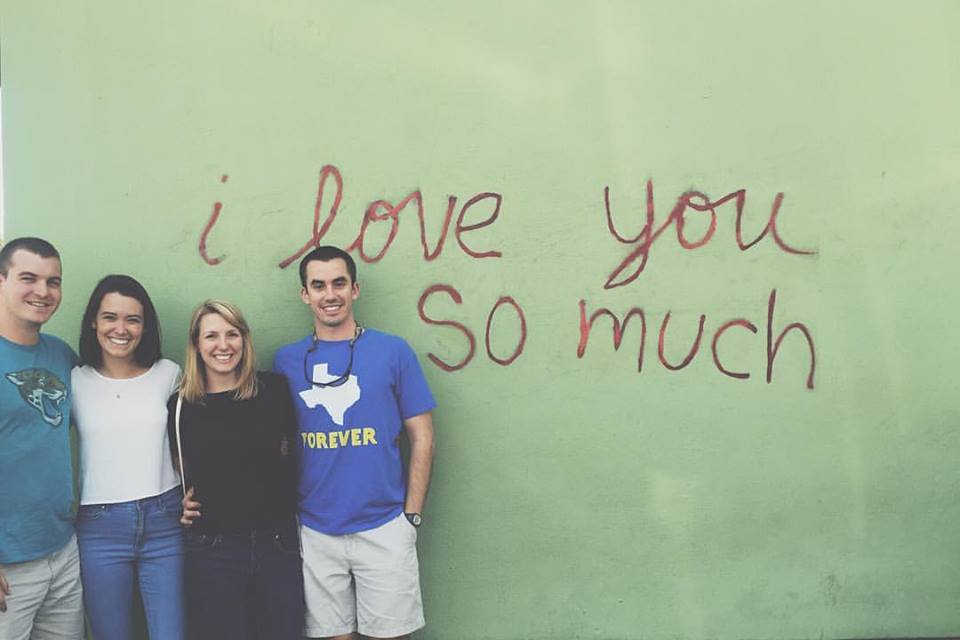 i love you
so much
FOREVER